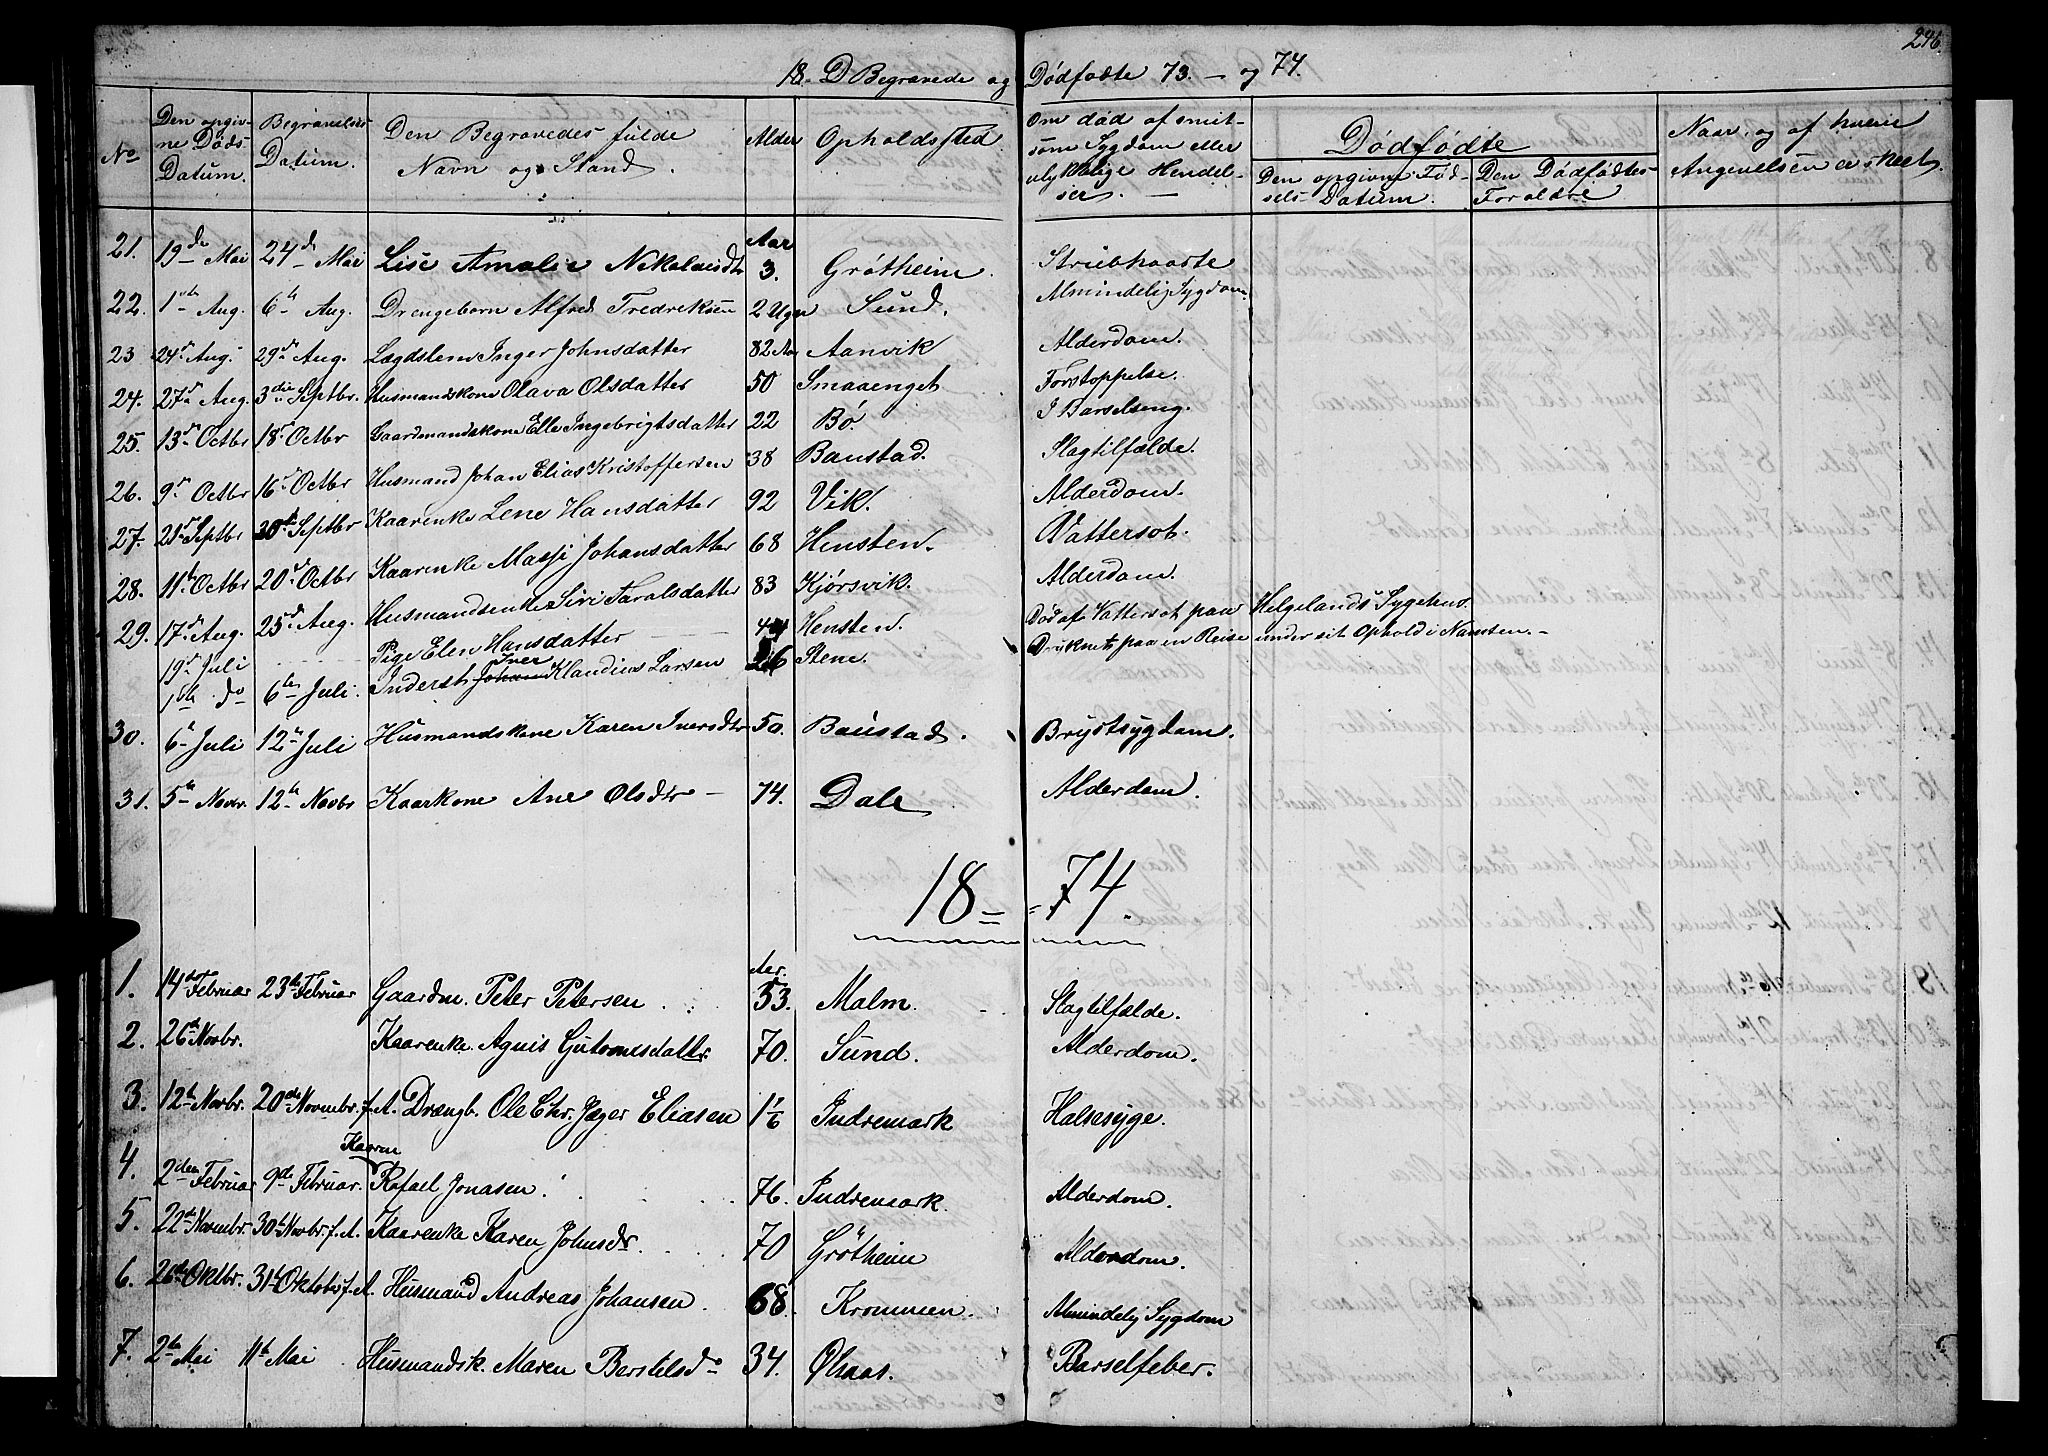 246.
18. D Begravede og Dödfödte 73. — og 74.
No
Den opgivne Döds Datum.
Begravelses Datum.
Den Begravedes fulde Navn og Stand.
Alder
Opholdssted
Om död af smitsom Sygdom eller ulykkelige Hendelser. —
Dödfödte
Den opgivne Födsels Datum.
Den Dödfödtes Foraldre
Naar og af hvem Angivelsen er skeet.
21. 19de Mai 24de Mai Lise Amalie Nikolaisdtr Aar 3. Grötheim. Strubhoste
22. 1ste Aug. 6te Aug. Drengebarn Alfred Fredreksen 2 Uger Sund. Almindelig Sygdom.
23 24d Aug. 29d Aug. Lægdslem Inger Johnsdatter 82 Aar Aanvik Alderdom.
24. 27d Aug. 3die Septbr. Husmandskone Olava Olsdatter 50 Smaaenget Forstoppelse.
25. 13d Octbr 18d Octbr Gaardmandskone Elle Ingebrigtsdatter 22 Bö. I Barselseng.
26. 9d Octbr 16d Octbr Husmand Johan Elias Kristoffersen 38 Baustad. Slagtilfælde.
27. 21d Septbr 30te Septbr Kaarenke Lene Hansdatter 92 Vik. Alderdom.
28. 11te Octbr 20d Octbr Kaarenke Masji Johansdatter 68 Hensten. Vattersot.
29. 17d Aug. 25d Aug. Husmandsenke Siri Taralsdatter 83 Kjörsvik. Alderdom.
19d Juli Pige Elen Hansdatter Hensten. Död af Vattersot paa Helgelands Sygehus.
1ste do 6te Juli. Inderst Johan Iver Klaudius Larsen 26 Stene. Druknet paa en Reise under sit Ophold i Namsen. —
30. 6te Juli 12te Juli Husmandskone Karen Iversdtr 50. Baustad. Brystsygdom.
31. 5te Novbr. 12te Novbr Kaarkone Ane Olsdtr — 74. Dale Alderdom.
18 = = 74.
1. 14de Februar 23de Februar Gaardm. Peter Petersen. Aar. 53. Malm. Slagtilfælde.
2. 26de Novbr. Kaarenke. Agnis Guttormsdattr. 70. Sund. Alderdom.
3. 12te Novbr. 20de Novembr. f. A. Drængb. Ole Chr. Jæger Eliasen 1 1/6 Indremark Halsesyge.
4. 2den Februar 9de Februar. Kaarm Rafael Jonasen. 76. Indremark. Alderdom.
5. 22de Novembr. 30te Novbr. f. A. Kaarenke Karen Johnsdr. 70 Grötheim Alderdom.
6. 26de Oktbr. 31te Oktober f. A. Husmand Andreas Johansen. 68. Krommen. Almindelig Sygdom
7. 2de Mai 11te Mai Husmandsk. Maren Berstelsdr 34. Ølsaas. Barselfeber.